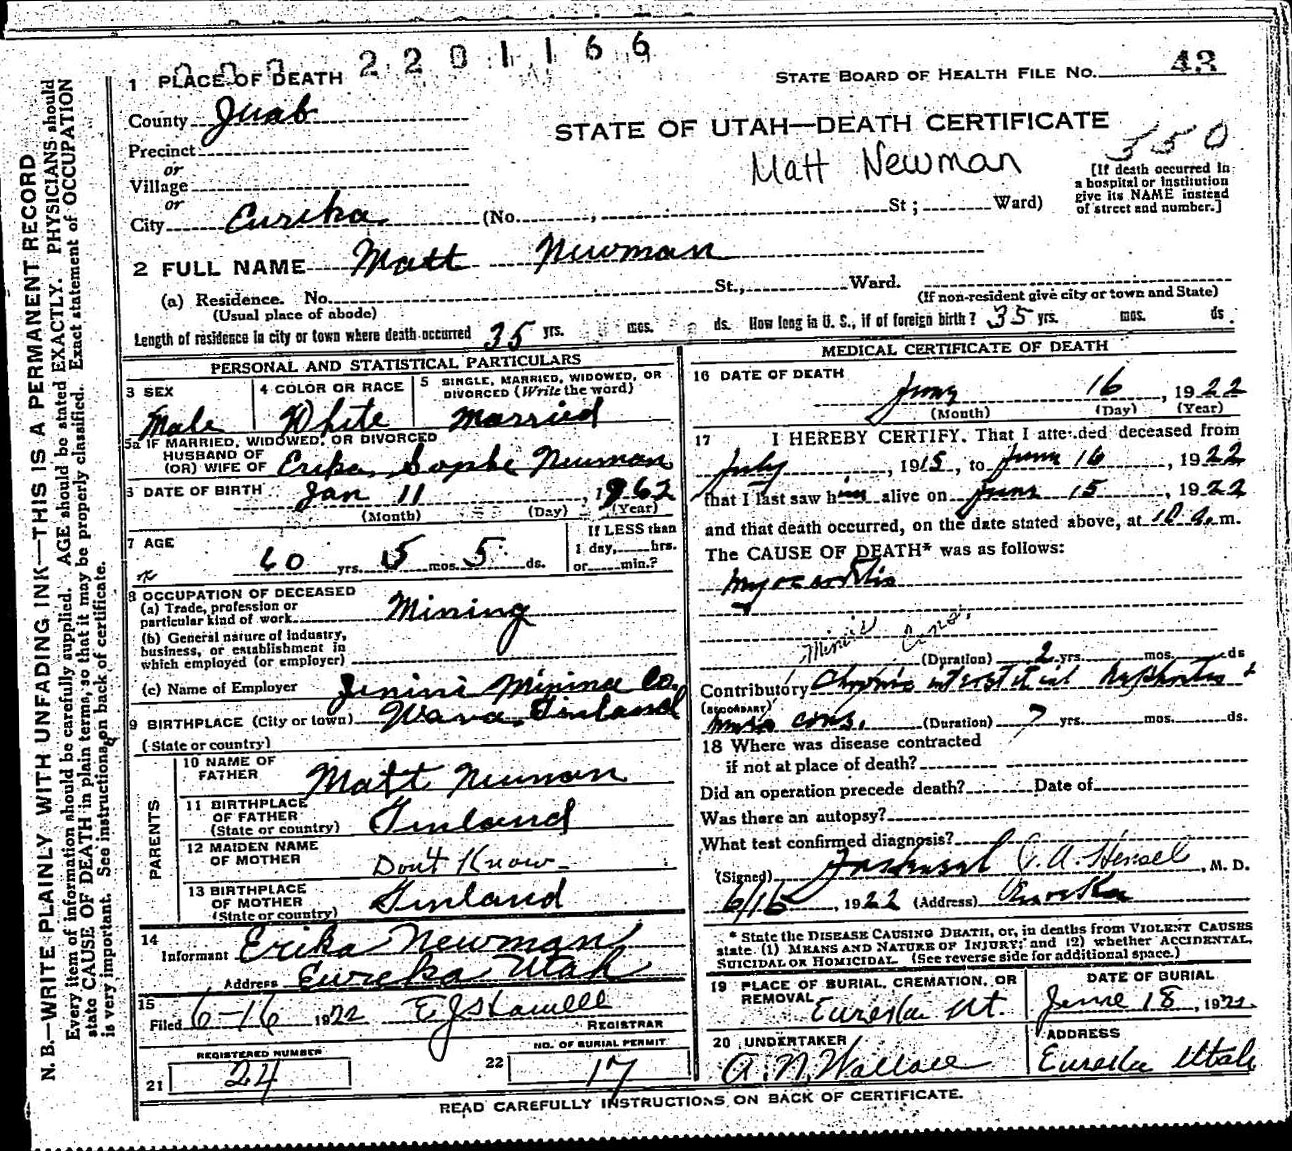 2201166
1 PLACE OF DEATH
STATE BOARD OF HEALTH FILE NO. 43
County Juab
STATE OF UTAH—DEATH CERTIFICATE
350
Precinct
Matt Newman
or
Village
or
City Eureka (No. , St; Ward)
[If death occurred in
a hospital or institution
give its NAME instead
of street and number.]
2 FULL NAME Matt Newman
(a) Residence. No. St., Ward.
(Usual place of abode)
(If non-resident give city or town and State)
Length of residence in city or town where death occurred 35 yrs. mos. ds. How long in U. S., if of foreign birth? 35 yrs. mos. ds.
PERSONAL AND STATISTICAL PARTICULARS
3 SEX
Male
4 COLOR OR RACE
White
5 SINGLE, MARRIED, WIDOWED, OR
DIVORCED (Write the word)
Married
5a IF MARRIED, WIDOWED, OR DIVORCED
HUSBAND OF
(OR) WIFE OF Erika Sophe Newman
6 DATE OF BIRTH Jan 11, 1862
(Month) (Day) (Year)
7 AGE
60 yrs. 5 mos. 5 ds.
If LESS than
1 day, hrs.
or min.?
8 OCCUPATION OF DECEASED
(a) Trade, profession or
particular kind of work Mining
(b) General nature of industry,
business, or establishment in
which employed (or employer)
(c) Name of Employer Mining Co.
9 BIRTHPLACE (City or town) Wava, Finland
(State or country)
PARENTS
10 NAME OF
FATHER Matt Neuman
11 BIRTHPLACE
OF FATHER
(State or country) Finland
12 MAIDEN NAME
OF MOTHER Don't Know
13 BIRTHPLACE
OF MOTHER
(State or country) Finland
14
Informant Erika Newman
Address Eureka Utah
15
Filed 6-16 1922
REGISTRAR
REGISTERED NUMBER
21 24
NO. OF BURIAL PERMIT
22 17
MEDICAL CERTIFICATE OF DEATH
16 DATE OF DEATH
June 16, 1922
(Month) (Day) (Year)
17 I HEREBY CERTIFY, That I attended deceased from
July, 1915, to June 16, 1922
that I last saw him alive on June 15, 1922
and that death occurred, on the date stated above, at 10 a.m.
The CAUSE OF DEATH* was as follows:
Myocarditis
Miners Cons.
(Duration) 2 yrs. mos. ds
Contributory Chronic interstitial Nephritis &
(SECONDARY)
cons. (Duration) 7 yrs. mos. ds.
18 Where was disease contracted
if not at place of death?
Did an operation precede death? Date of
Was there an autopsy?
What test confirmed diagnosis?
(Signed) Hensel, M. D.
6/16, 1922 (Address) Eureka
* State the DISEASE CAUSING DEATH, or, in deaths from VIOLENT CAUSES
state (1) MEANS AND NATURE OF INJURY; and (2) whether ACCIDENTAL,
SUICIDAL OR HOMICIDAL. (See reverse side for additional space.)
19 PLACE OF BURIAL, CREMATION, OR
REMOVAL Eureka Ut.
DATE OF BURIAL
June 18, 1922
20 UNDERTAKER
A. N. Wallace
ADDRESS
Eureka Utah
READ CAREFULLY INSTRUCTIONS ON BACK OF CERTIFICATE.
N. B.—WRITE PLAINLY WITH UNFADING INK—THIS IS A PERMANENT RECORD
Every item of information should be carefully supplied. AGE should be stated EXACTLY. PHYSICIANS should
state CAUSE OF DEATH in plain terms, so that it may be properly classified. Exact statement of OCCUPATION
is very important. See instructions on back of certificate.